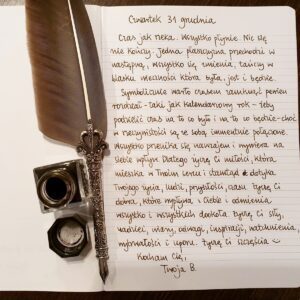 Czwartek 31 grudnia
Czas jak rzeka. Wszystko płynie. Nic się
nie kończy. Jedna płaszczyzna przechodzi w
następną, wszystko się zmienia, tańczy w
blasku wieczności która była, jest i będzie.
Symbolicznie warto czasem zamknąć pewien
rozdział - taki jak kalendarzowy rok - żeby
podzielić czas na to co było i na to co będzie - choć
w rzeczywistości są ze sobą immanentnie połączone.
Wszystko przenika się nawzajem i wywiera na
siebie wpływ. Dlatego życzę Ci miłości, która
mieszka w Twoim sercu i stamtąd dotyka
Twojego życia, ludzi, przyszłości, czasu. Życzę Ci
dobra, które wypływa z Ciebie i odmienia
wszystko i wszystkich dookoła. Życzę Ci siły,
nadziei, wiary, odwagi, inspiracji, natchnienia,
wytrwałości i uporu. Życzę Ci szczęścia
Kocham Cię,
Twoja B.